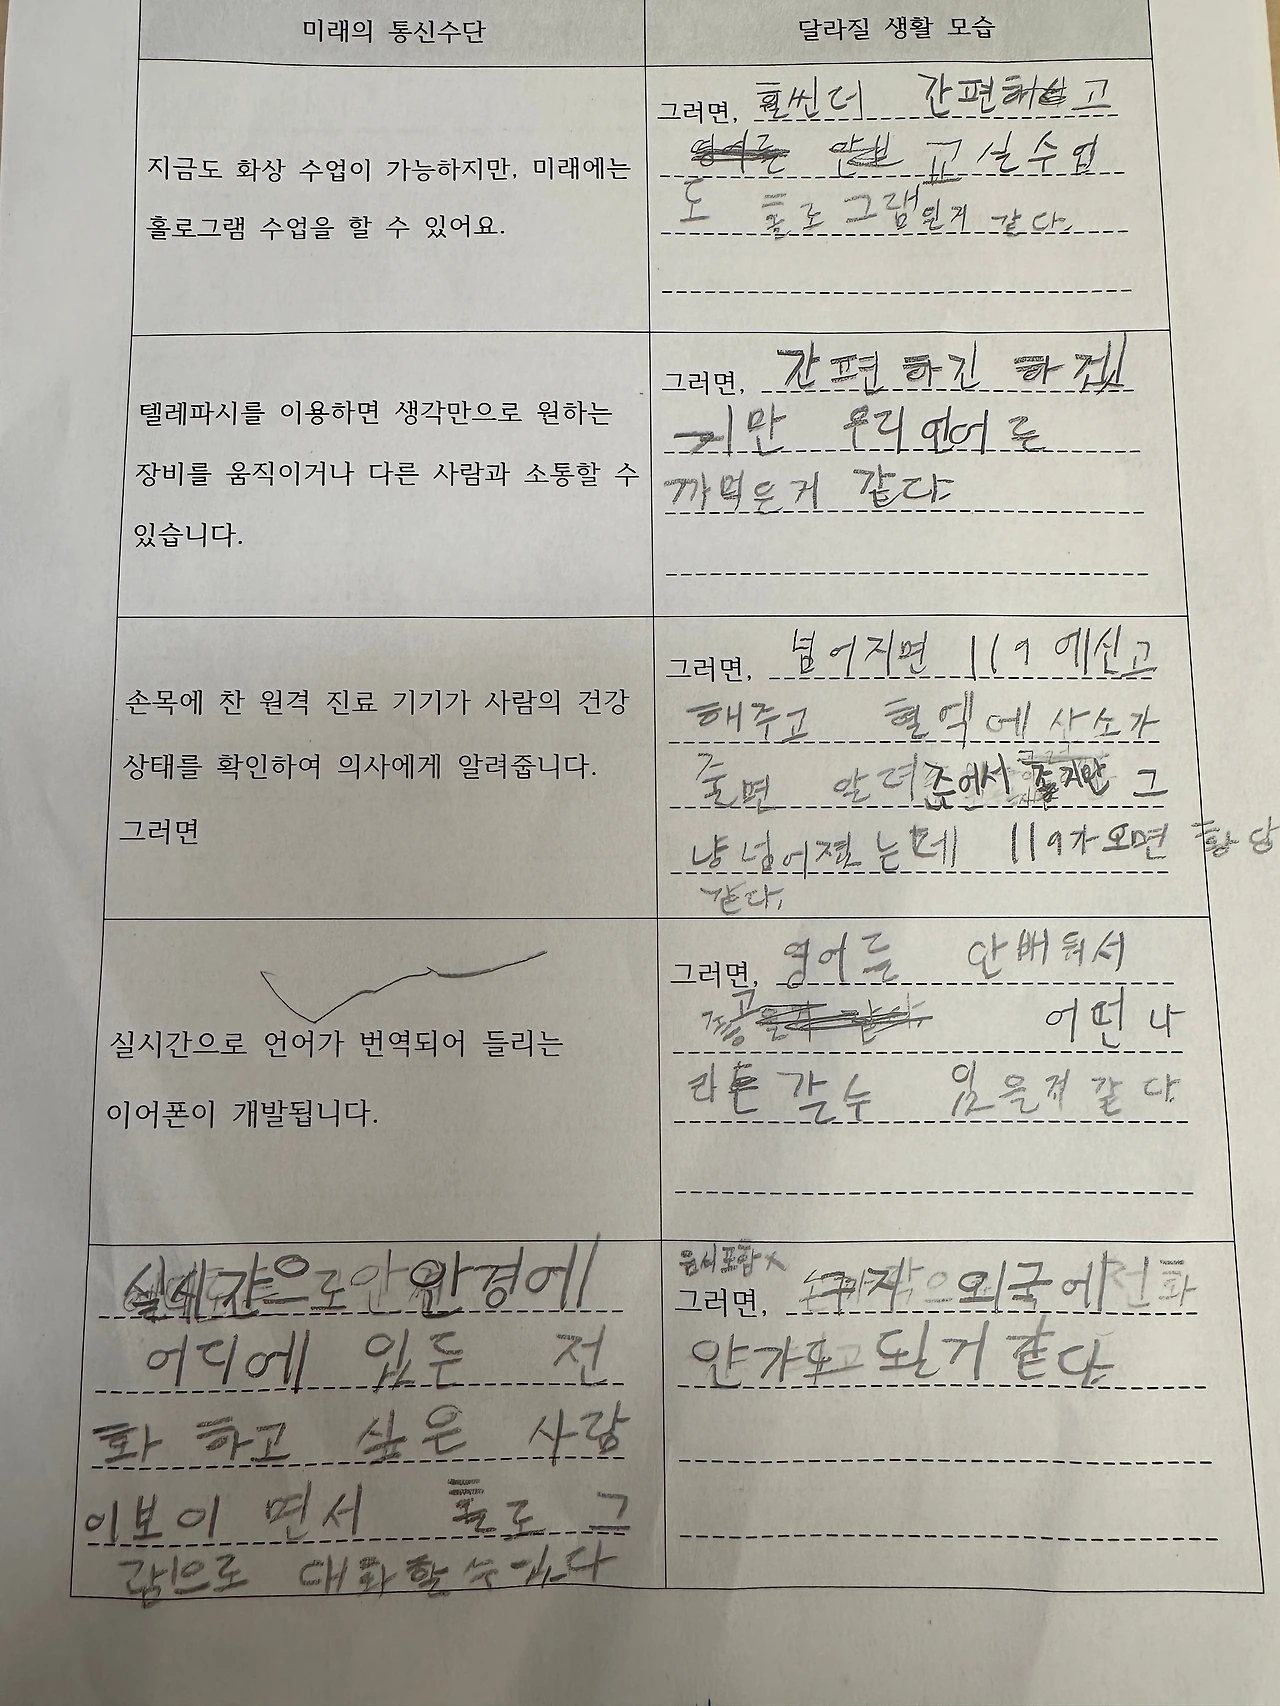 미래의 통신수단
달라질 생활 모습
지금도 화상 수업이 가능하지만, 미래에는
홀로그램 수업을 할 수 있어요.
그러면, 훨씬더 간편 고
교실수업
도 홀로그램인게 같다.
텔레파시를 이용하면 생각만으로 원하는
장비를 움직이거나 다른 사람과 소통할 수
있습니다.
그러면, 간편하긴 하겠
지만 우리언어를
까먹은거 같다
손목에 찬 원격 진료 기기가 사람의 건강
상태를 확인하여 의사에게 알려줍니다.
그러면
그러면, 넘어지면 119에신고
해주고 혈액에 산소가
줄면 알려주어서 좋지만 그
냥넘어졌는데 119가오면 황당
같다.
실시간으로 언어가 번역되어 들리는
이어폰이 개발됩니다.
그러면, 영어를 안배워서
어떤나
라든갈수 있을거같다
실시간으로 안경에
어디에 있든 전
화하고 싶은 사람
이보이면서 홀로그
램으로 대화할수있다
그러면, 외국에전화
안가도 될거같다.